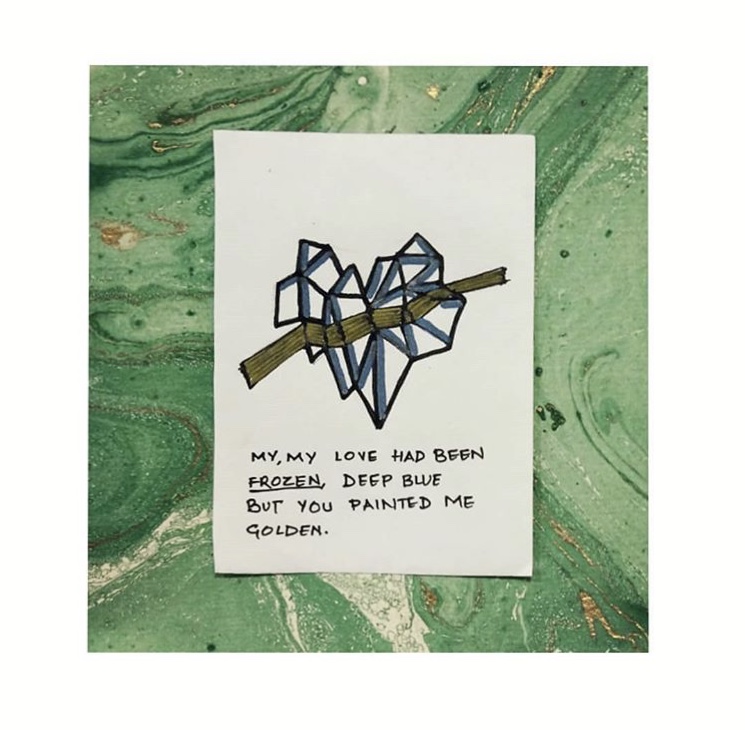 MY, MY LOVE HAD BEEN
FROZEN, DEEP BLUE
BUT YOU PAINTED ME
GOLDEN.